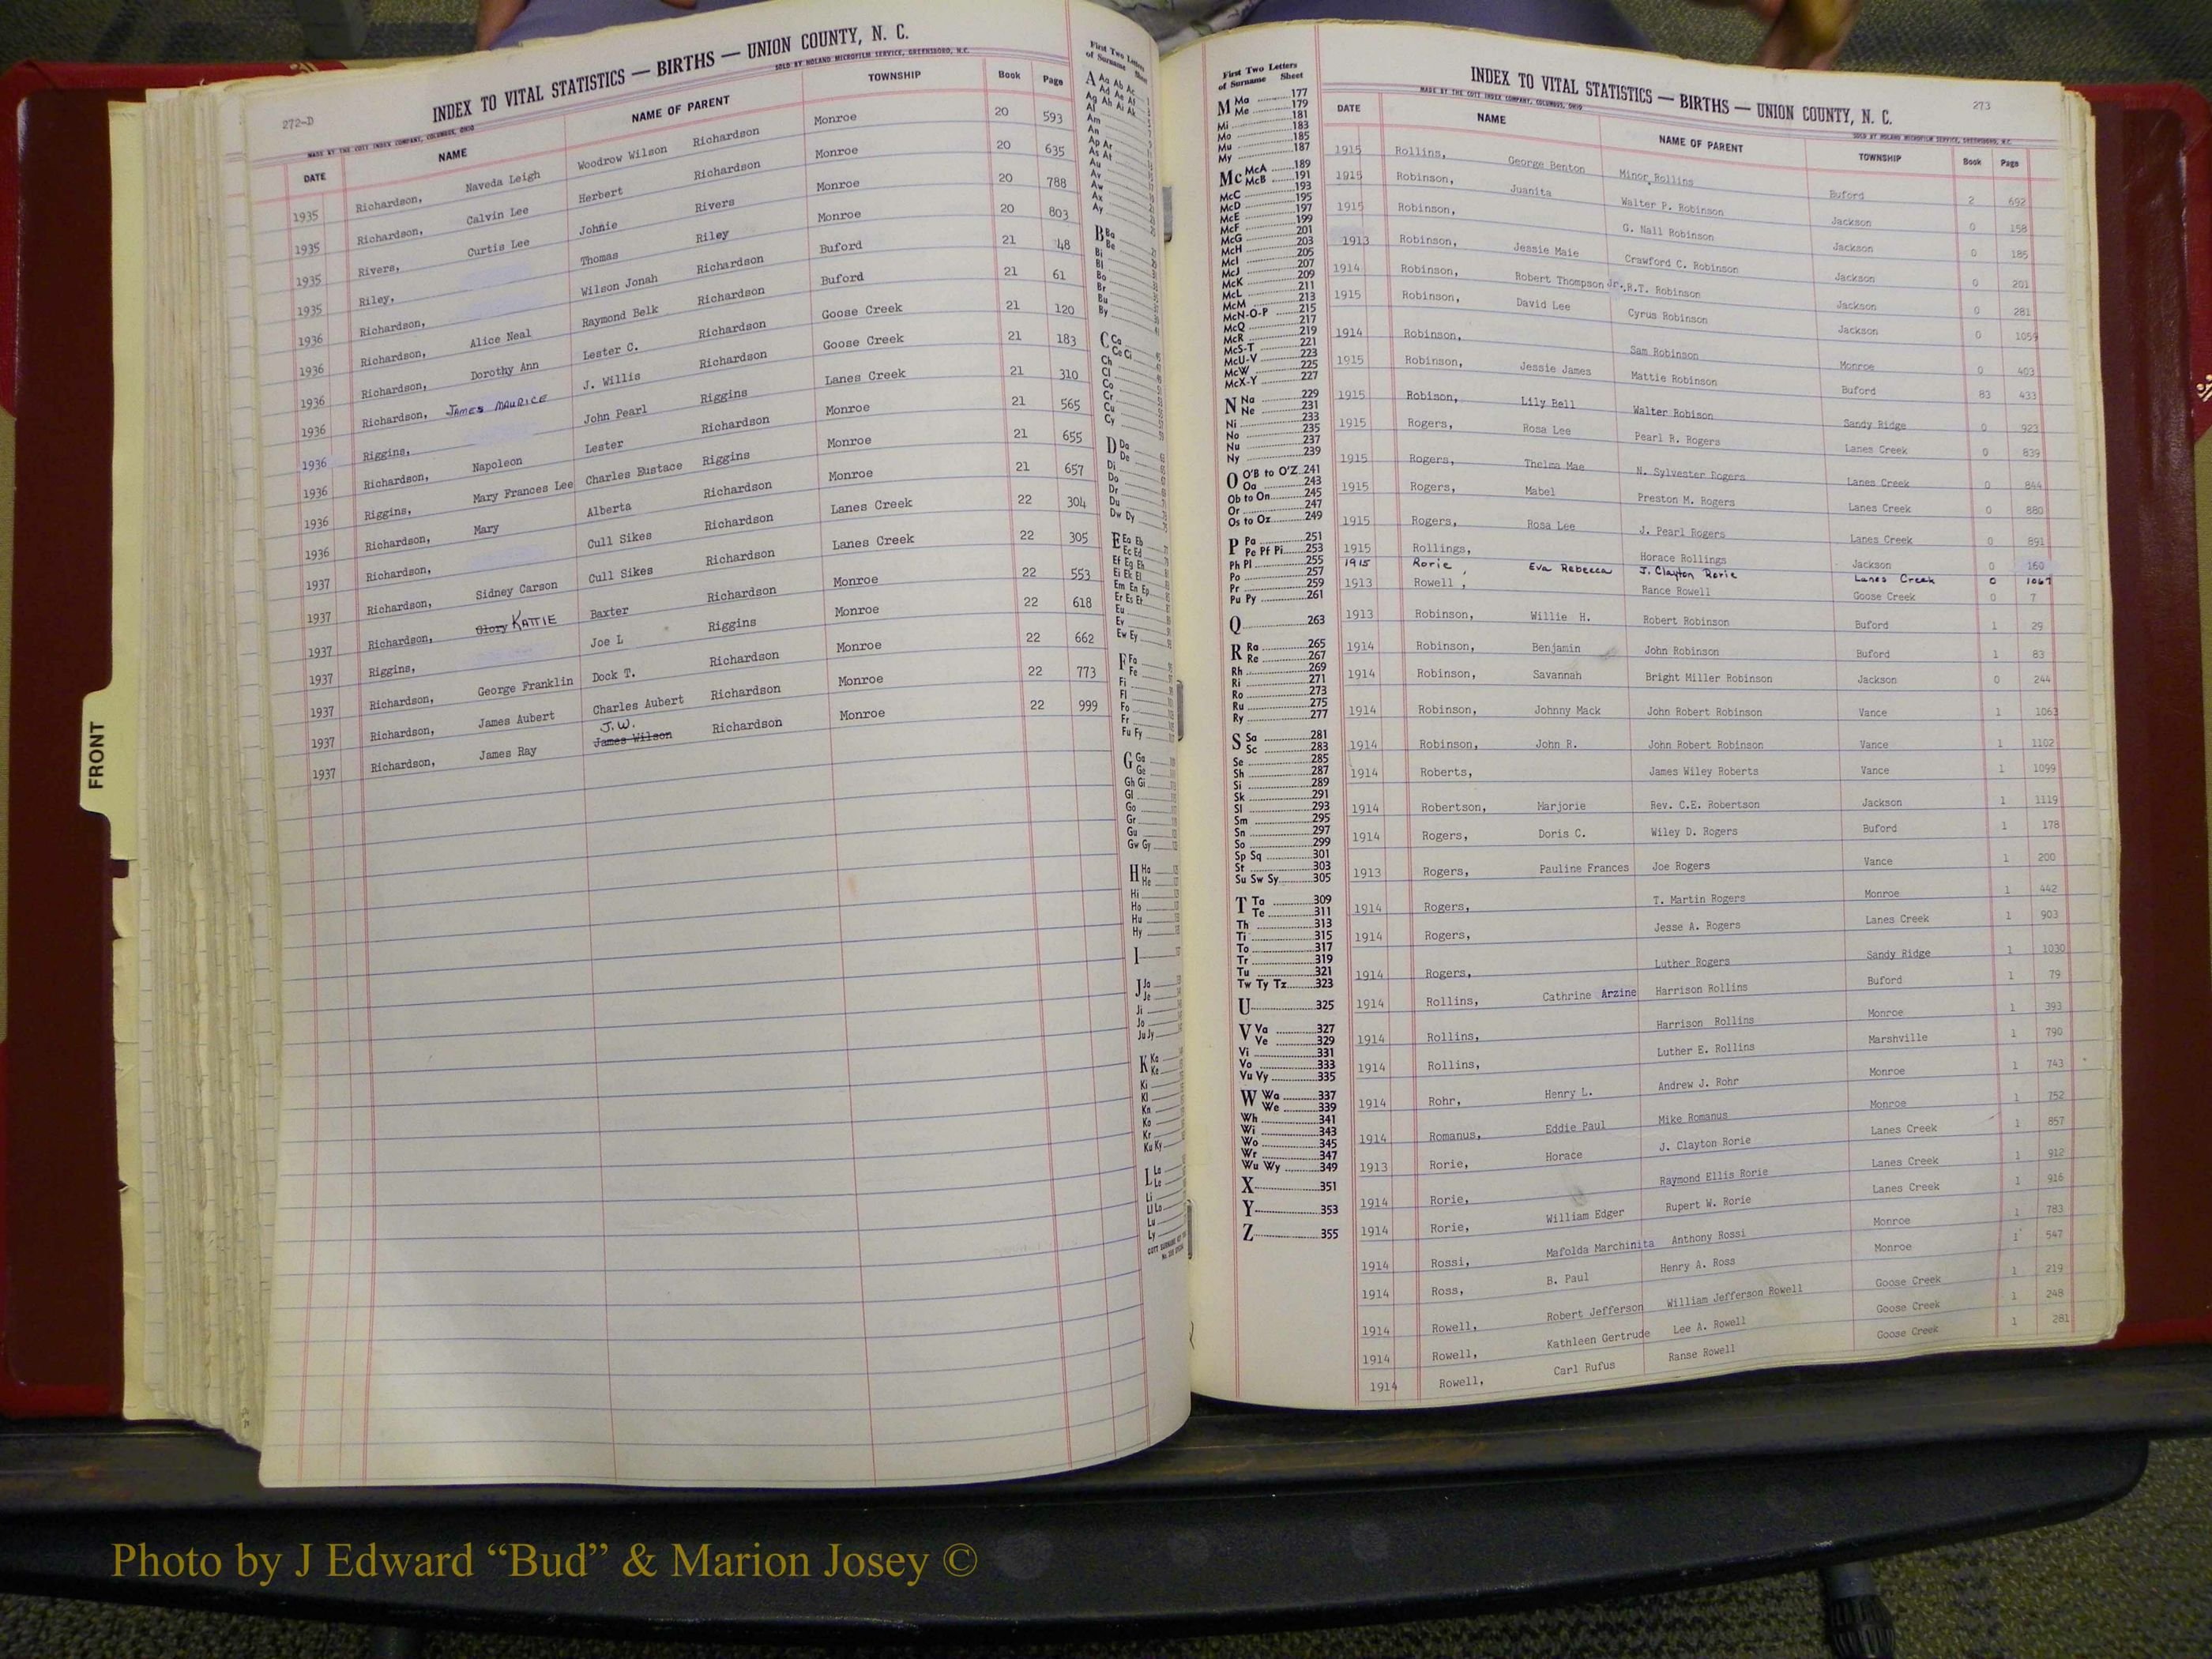 272-D
INDEX TO VITAL STATISTICS — BIRTHS — UNION COUNTY, N. C.
MADE BY THE COTT INDEX COMPANY, COLUMBUS, OHIO SOLD BY HOLAND MICROFILM SERVICE, GREENSBORO, N.C.
DATE NAME NAME OF PARENT TOWNSHIP Book Page
1935 Richardson, Naveda Leigh Woodrow Wilson Richardson Monroe 20 593
1935 Richardson, Calvin Lee Herbert Richardson Monroe 20 635
1935 Rivers, Curtis Lee Johnie Rivers Monroe 20 788
1935 Riley, Thomas Riley Monroe 20 803
1936 Richardson, Wilson Jonah Richardson Buford 21 48
1936 Richardson, Alice Neal Raymond Belk Richardson Buford 21 61
1936 Richardson, Dorothy Ann Lester C. Richardson Goose Creek 21 120
1936 Richardson, JAMES MAURICE J. Willis Richardson Goose Creek 21 183
1936 Riggins, John Pearl Riggins Lanes Creek 21 310
1936 Richardson, Napoleon Lester Richardson Monroe 21 565
1936 Riggins, Mary Frances Lee Charles Eustace Riggins Monroe 21 655
1936 Richardson, Mary Alberta Richardson Monroe 21 657
1937 Richardson, Cull Sikes Richardson Lanes Creek 22 304
1937 Richardson, Sidney Carson Cull Sikes Richardson Lanes Creek 22 305
1937 Richardson, Glory KATTIE Baxter Richardson Monroe 22 553
1937 Riggins, Joe L Riggins Monroe 22 618
1937 Richardson, George Franklin Dock T. Richardson Monroe 22 662
1937 Richardson, James Aubert Charles Aubert Richardson Monroe 22 773
J.W.
1937 Richardson, James Ray James Wilson Richardson Monroe 22 999
FRONT
First Two Letters of Surname Sheet
A Aa Ab Ac
B Ba
Be
C Ca
D Da
De
F Fa
Fe
G Ga
Ge
H Ha
He
I
J Ja
Je
K Ka
Ke
L La
Le
First Two Letters
of Surname Sheet
M Ma 177
Me 179
Mi 181
Mo 183
Mu 185
My 187
Mc McA 189
McB 191
McC 193
McD 195
McE 197
McF 199
McG 201
McH 203
McI 205
McJ 207
McK 209
McL 211
McM 213
McN-O-P 215
McQ 217
McR 219
McS-T 221
McU-V 223
McW 225
McX-Y 227
N Na 229
Ne 231
Ni 233
No 235
Nu 237
Ny 239
O O'B to O'Z 241
Oa 243
Ob to On 245
Or 247
Os to Oz 249
P Pa 251
Pe Pf Pi 253
Ph Pl 255
Po 257
Pr 259
Pu Py 261
Q 263
R Ra 265
Re 267
Rh 269
Ri 271
Ro 273
Ru 275
Ry 277
S Sa 281
Sc 283
Se 285
Sh 287
Si 289
Sk 291
Sl 293
Sm 295
Sn 297
So 299
Sp Sq 301
St 303
Su Sw Sy 305
T Ta 309
Te 311
Th 313
Ti 315
To 317
Tr 319
Tu 321
Tw Ty Tz 323
U 325
V Va 327
Ve 329
Vi 331
Vo 333
Vu Vy 335
W Wa 337
We 339
Wh 341
Wi 343
Wo 345
Wr 347
Wu Wy 349
X 351
Y 353
Z 355
INDEX TO VITAL STATISTICS — BIRTHS — UNION COUNTY, N. C. 273
MADE BY THE COTT INDEX COMPANY, COLUMBUS, OHIO SOLD BY HOLAND MICROFILM SERVICE, GREENSBORO, N.C.
DATE NAME NAME OF PARENT TOWNSHIP Book Page
1915 Rollins, George Benton Minor Rollins Buford 2 692
1915 Robinson, Juanita Walter P. Robinson Jackson 0 158
1915 Robinson, G. Nall Robinson Jackson 0 185
1913 Robinson, Jessie Maie Crawford C. Robinson Jackson 0 201
1914 Robinson, Robert Thompson Jr. R.T. Robinson Jackson 0 281
1915 Robinson, David Lee Cyrus Robinson Jackson 0 1059
1914 Robinson, Sam Robinson Monroe 0 403
1915 Robinson, Jessie James Mattie Robinson Buford 83 433
1915 Robison, Lily Bell Walter Robison Sandy Ridge 0 923
1915 Rogers, Rosa Lee Pearl R. Rogers Lanes Creek 0 839
1915 Rogers, Thelma Mae N. Sylvester Rogers Lanes Creek 0 844
1915 Rogers, Mabel Preston M. Rogers Lanes Creek 0 880
1915 Rogers, Rosa Lee J. Pearl Rogers Lanes Creek 0 891
1915 Rollings, Horace Rollings Jackson 0 160
1915 Rorie, Eva Rebecca J. Clayton Rorie Lanes Creek 0 1067
1913 Rowell, Rance Rowell Goose Creek 0 7
1913 Robinson, Willie H. Robert Robinson Buford 1 29
1914 Robinson, Benjamin John Robinson Buford 1 83
1914 Robinson, Savannah Bright Miller Robinson Jackson 0 244
1914 Robinson, Johnny Mack John Robert Robinson Vance 1 1063
1914 Robinson, John R. John Robert Robinson Vance 1 1102
1914 Roberts, James Wiley Roberts Vance 1 1099
1914 Robertson, Marjorie Rev. C.E. Robertson Jackson 1 1119
1914 Rogers, Doris C. Wiley D. Rogers Buford 1 178
1913 Rogers, Pauline Frances Joe Rogers Vance 1 200
1914 Rogers, T. Martin Rogers Monroe 1 442
1914 Rogers, Jesse A. Rogers Lanes Creek 1 903
1914 Rogers, Luther Rogers Sandy Ridge 1 1030
1914 Rollins, Cathrine Arzine Harrison Rollins Buford 1 79
1914 Rollins, Harrison Rollins Monroe 1 393
1914 Rollins, Luther E. Rollins Marshville 1 790
1914 Rohr, Henry L. Andrew J. Rohr Monroe 1 743
1914 Romanus, Eddie Paul Mike Romanus Monroe 1 752
1913 Rorie, Horace J. Clayton Rorie Lanes Creek 1 857
1914 Rorie, Raymond Ellis Rorie Lanes Creek 1 912
1914 Rorie, William Edger Rupert W. Rorie Lanes Creek 1 916
1914 Rossi, Mafolda Marchinita Anthony Rossi Monroe 1 783
1914 Ross, B. Paul Henry A. Ross Monroe 1 547
1914 Rowell, Robert Jefferson William Jefferson Rowell Goose Creek 1 219
1914 Rowell, Kathleen Gertrude Lee A. Rowell Goose Creek 1 248
1914 Rowell, Carl Rufus Ranse Rowell Goose Creek 1 281
Photo by J Edward “Bud” & Marion Josey ©